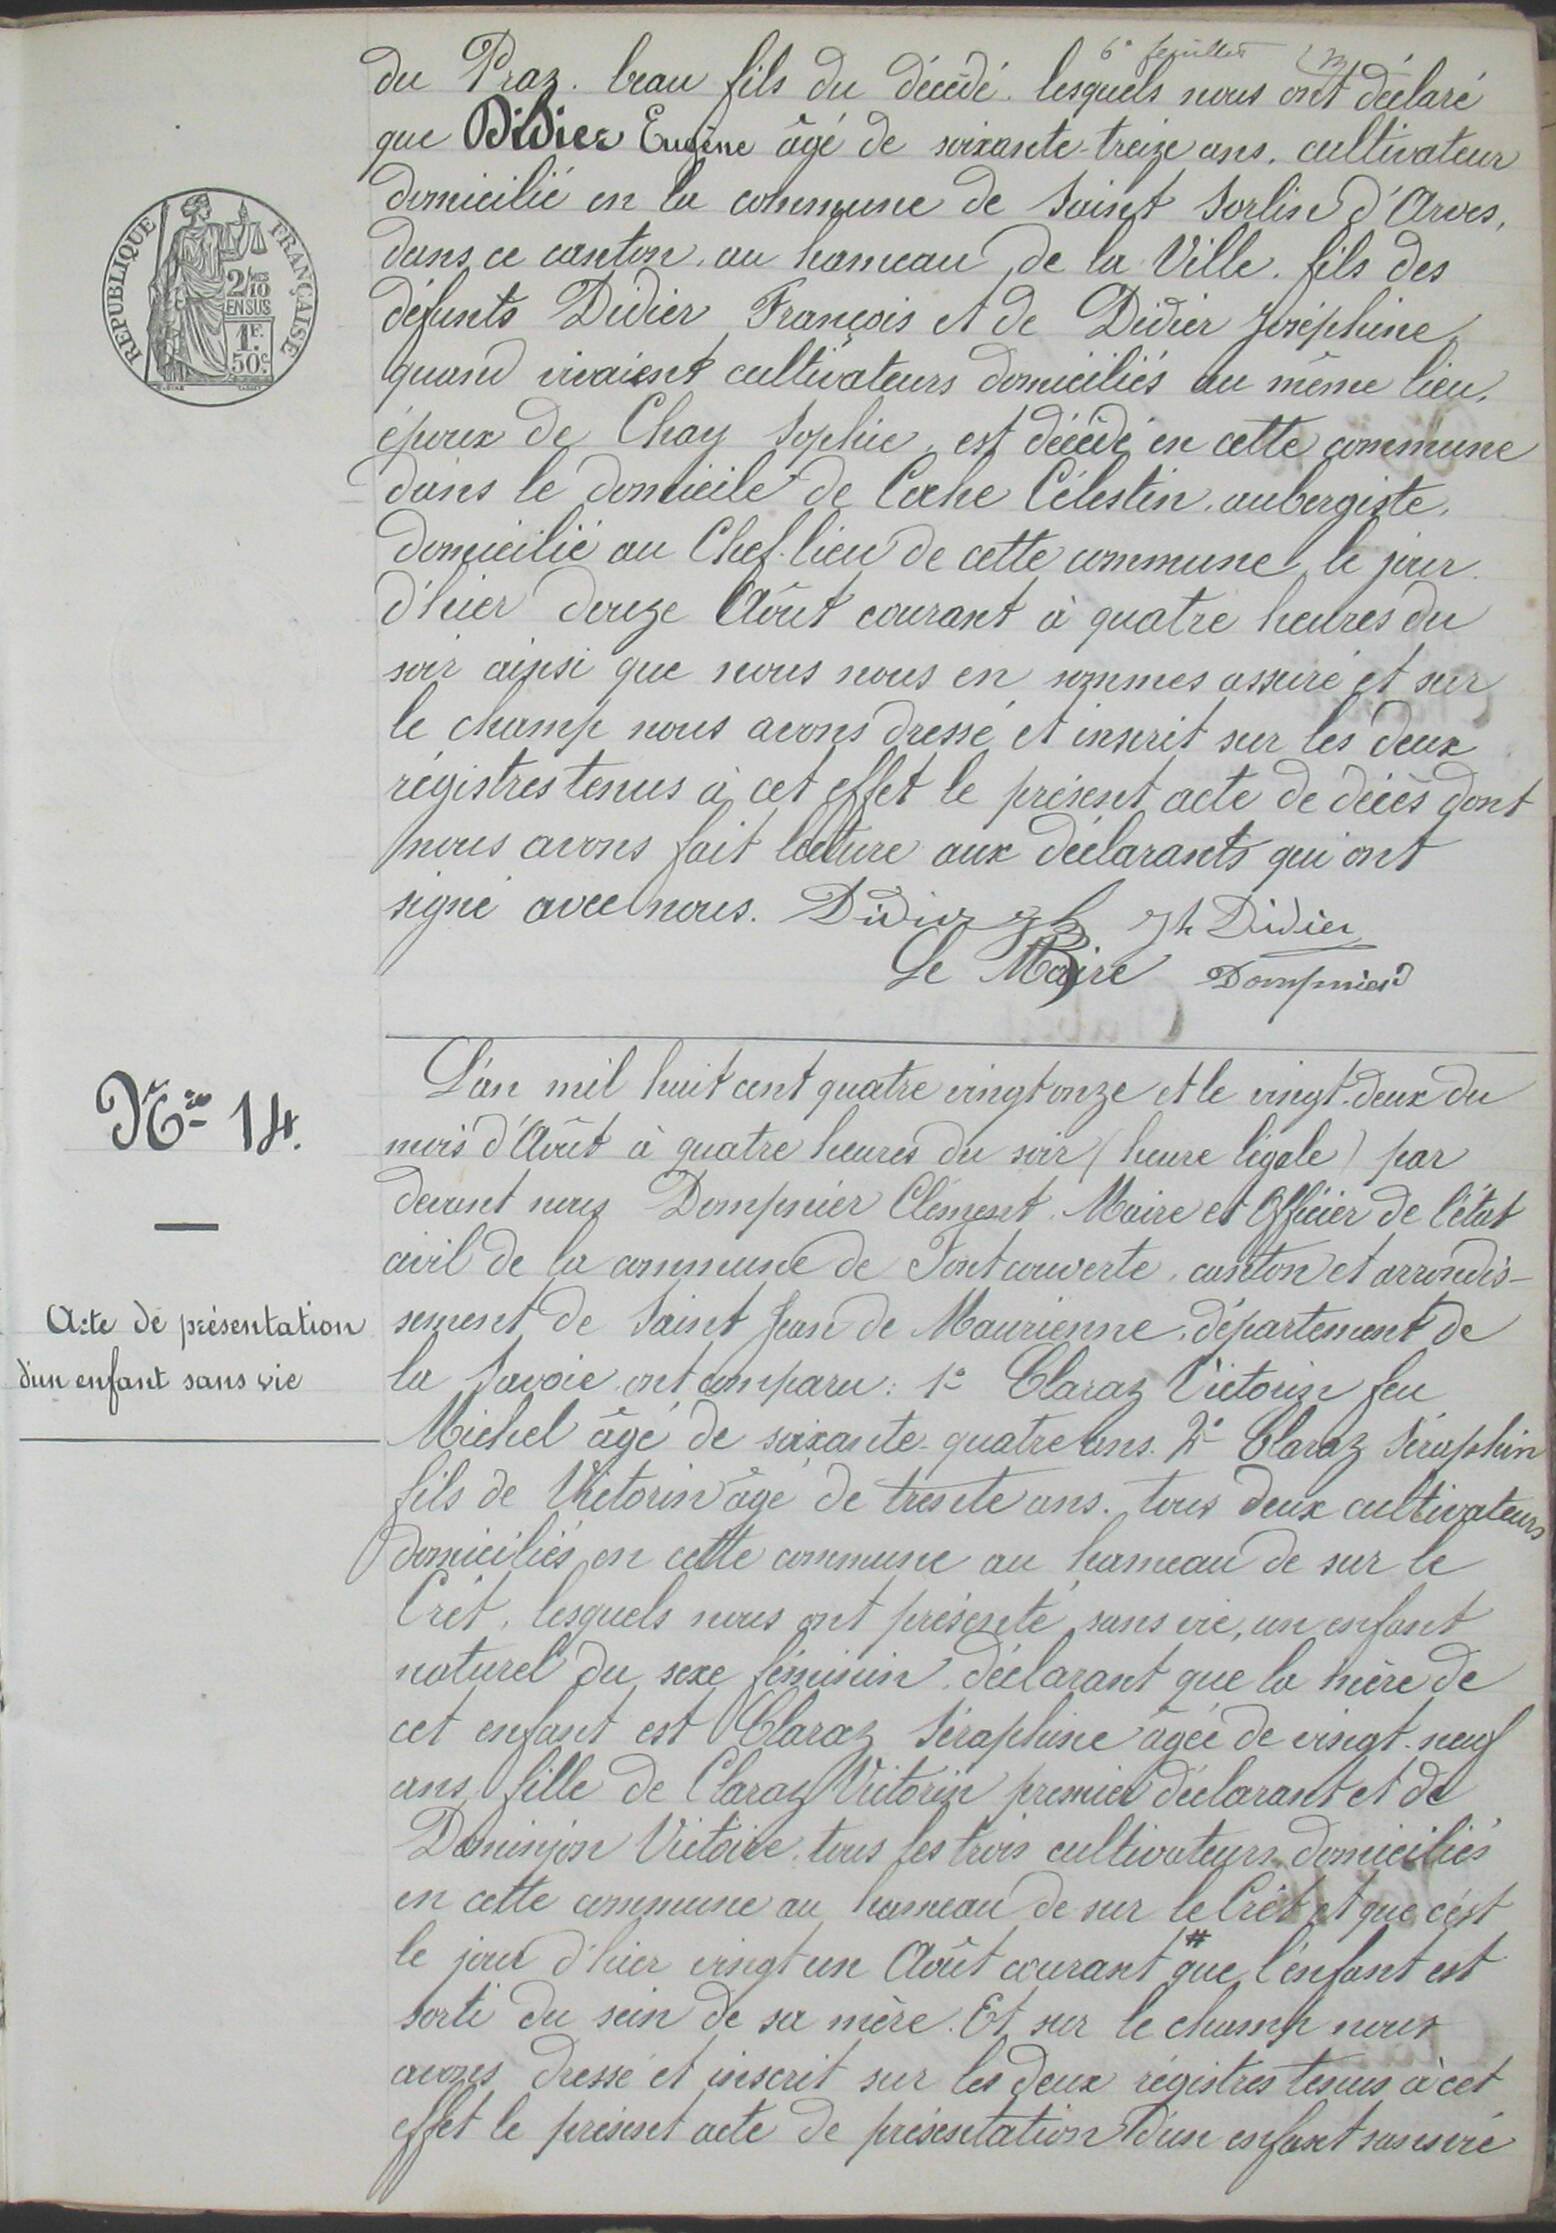 6e feuillet
du Praz. beau fils du décédé. lesquels nous ont déclaré
que Didier Eugène âgé de soixante-treize ans, cultivateur
domicilié en la commune de Saint Sorlin d'Arves,
dans ce canton, au hameau de la Ville, fils des
défunts Didier François et de Didier Joséphine
quand vivaient cultivateurs domiciliés au même lieu,
époux de Chay Sophie, est décédé en cette commune
dans le domicile de Coche Célestin, aubergiste,
domicilié au Chef-lieu de cette commune, le jour
d'hier douze Août courant à quatre heures du
soir ainsi que nous nous en sommes assuré et sur
le champ nous avons dressé et inscrit sur les deux
régistres tenus à cet effet le présent acte de décès dont
nous avons fait lecture aux déclarants qui ont
signé avec nous. Didier Jh Jh Didier
Le Maire Dompnier
REPUBLIQUE FRANÇAISE
2/10
EN SUS
1F.
50c.
Nro 14.
Acte de présentation
d'un enfant sans vie
L'an mil huit cent quatre vingt onze et le vingt-deux du
mois d'Août à quatre heures du soir (heure légale) par
devant nous Dompnier Clément, Maire et Officier de l'état
civil de la commune de Fontcouverte, canton et arrondis-
sement de Saint Jean de Maurienne, département de
la Savoie ont comparu: 1° Claraz Victorin feu
Michel âgé de soixante-quatre ans. 2° Claraz Séraphin
fils de Victorin âgé de trente ans. tous deux cultivateurs
domiciliés en cette commune au hameau de sur le
Crêt, lesquels nous ont présenté, sans vie, un enfant
naturel du sexe féminin, déclarant que la mère de
cet enfant est Claraz Séraphine âgée de vingt-neuf
ans, fille de Claraz Victorin premier déclarant et de
Dominjon Victoire, tous les trois cultivateurs domiciliés
en cette commune au hameau de sur le Crêt et que c'est
le jour d'hier vingt un Août courant # que l'enfant est
sorti du sein de sa mère. Et sur le champ nous
avons dressé et inscrit sur les deux régistres tenus à cet
effet le présent acte de présentation d'un enfant sans vie